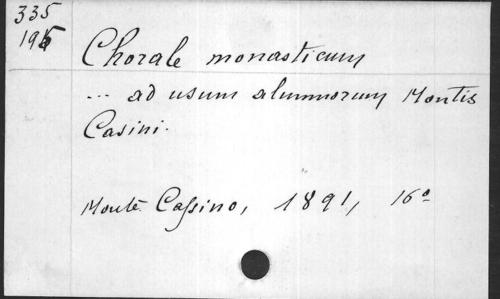 335
195
Chorale monasticum
... ad usum alumnorum Montis
Casini.
Monte Cassino, 1891, 16°